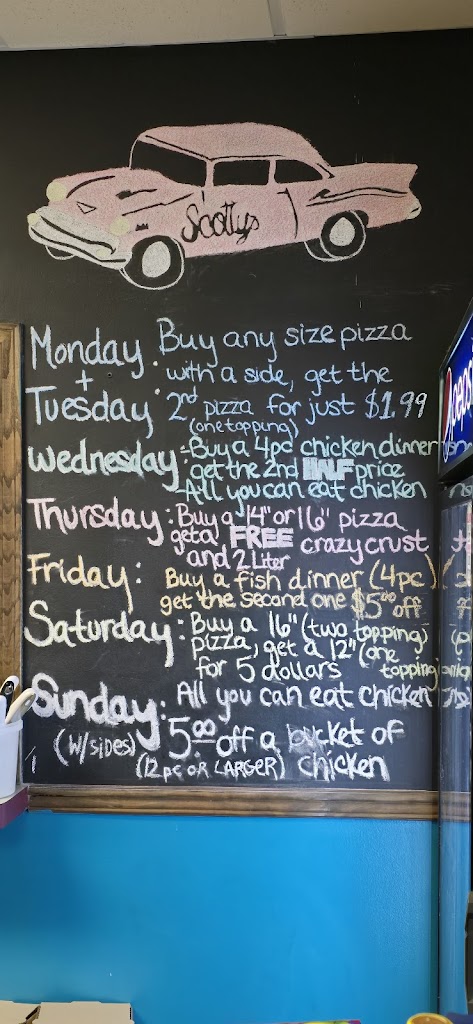 Scottys
Monday : Buy any size pizza
+ with a side, get the
Tuesday 2nd pizza for just $1.99
(one topping)
Wednesday -Buy a 4pc chicken dinner
get the 2nd HALF price
-All you can eat chicken
Thursday : Buy a 14" or 16" pizza
get a FREE crazy crust
and 2 Liter
Friday : Buy a fish dinner (4pc)
get the second one $5.00 off
Saturday : Buy a 16" (two topping)
pizza, get a 12" (one
for 5 dollars topping)
Sunday : All you can eat chicken
(w/sides) 5.00 off a bucket of
(12 pc OR LARGER) chicken
pepsi